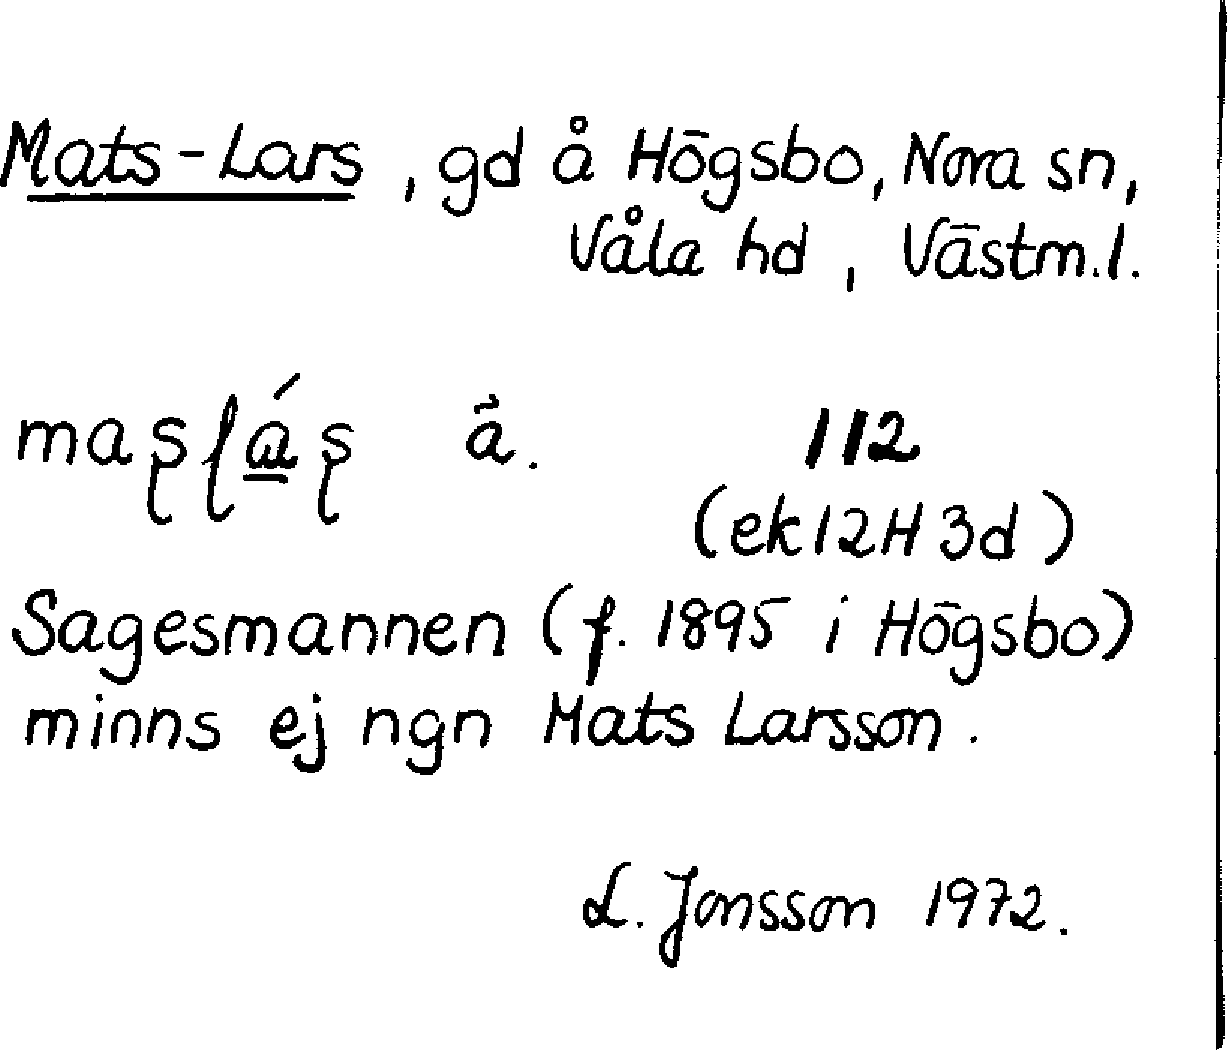 Mats-Lars, gd å Högsbo, Nora sn,
Våla hd, Västm.l.
maʂɭá̲ʂ ä. 112
(ek 12H 3d)
Sagesmannen (f. 1895 i Högsbo)
minns ej ngn Mats Larsson.
L. Jonsson 1972.